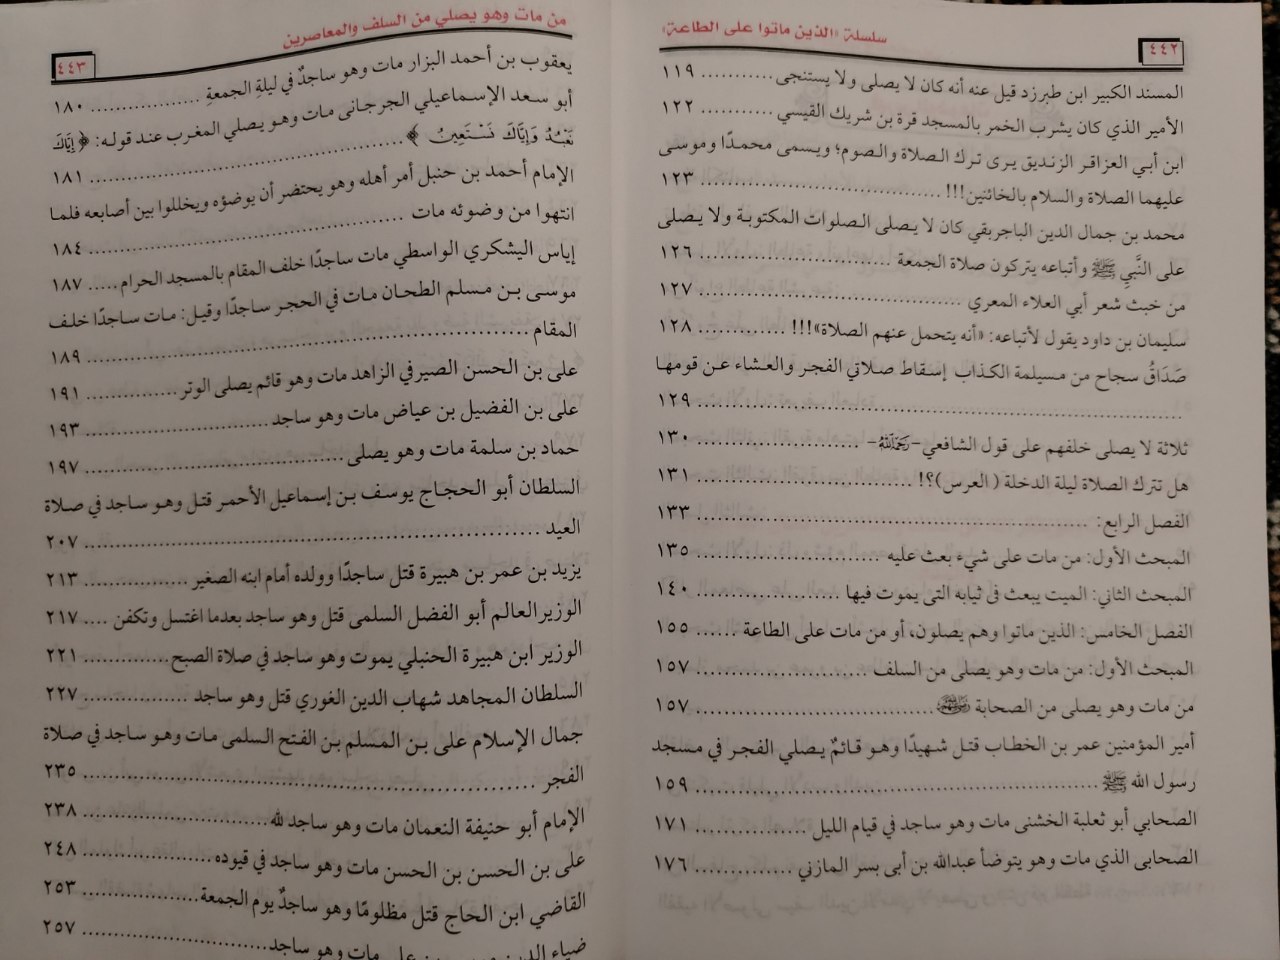 ٤٤٢
سلسلة «الذين ماتوا على الطاعة»
المسند الكبير ابن طبرزد قيل عنه أنه كان لا يصلى ولا يستنجى ........... ١١٩
الأمير الذي كان يشرب الخمر بالمسجد قرة بن شريك القيسي ........... ١٢٢
ابن أبي العزاقر الزنديق يرى ترك الصلاة والصوم؛ ويسمى محمدًا وموسى
عليهما الصلاة والسلام بالخائنين!!! ........... ١٢٣
محمد بن جمال الدين الباجربقي كان لا يصلى الصلوات المكتوبة ولا يصلى
على النَّبيِ ﷺ وأتباعه يتركون صلاة الجمعة ........... ١٢٦
من خبث شعر أبي العلاء المعري ........... ١٢٧
سليمان بن داود يقول لأتباعه: «أنه يتحمل عنهم الصلاة»!!! ........... ١٢٨
صَدَاقُ سجاح من مسيلمة الكذاب إسقاط صلاتي الفجر والعشاء عن قومها
........... ١٢٩
ثلاثة لا يصلى خلفهم على قول الشافعي -رحمه الله- ........... ١٣٠
هل تترك الصلاة ليلة الدخلة (العرس)؟! ........... ١٣١
الفصل الرابع: ........... ١٣٣
المبحث الأول: من مات على شيء بعث عليه ........... ١٣٥
المبحث الثاني: الميت يبعث فى ثيابه التى يموت فيها ........... ١٤٠
الفصل الخامس: الذين ماتوا وهم يصلون، أو من مات على الطاعة ...... ١٥٥
المبحث الأول: من مات وهو يصلى من السلف ........... ١٥٧
من مات وهو يصلى من الصحابة ........... ١٥٧
أمير المؤمنين عمر بن الخطاب قتل شهيدًا وهو قائمٌ يصلي الفجر في مسجد
رسول الله ﷺ ........... ١٥٩
الصحابي أبو ثعلبة الخشنى مات وهو ساجد في قيام الليل ........... ١٧١
الصحابى الذي مات وهو يتوضأ عبدالله بن أبى بسر المازني ........... ١٧٦
من مات وهو يصلي من السلف والمعاصرين
٤٤٣
يعقوب بن أحمد البزار مات وهو ساجدٌ في ليلةِ الجمعةِ ........... ١٨٠
أبو سعد الإسماعيلي الجرجانى مات وهو يصلي المغرب عند قوله: ﴿إِيَّاكَ
نَعْبُدُ وَإِيَّاكَ نَسْتَعِينُ﴾ ........... ١٨١
الإمام أحمد بن حنبل أمر أهله وهو يحتضر أن يوضؤه ويخللوا بين أصابعه فلما
انتهوا من وضوئه مات ........... ١٨٤
إياس اليشكري الواسطي مات ساجدًا خلف المقام بالمسجد الحرام ..... ١٨٧
موسى بن مسلم الطحان مات في الحجر ساجدًا وقيل: مات ساجدًا خلف
المقام ........... ١٨٩
على بن الحسن الصيرفي الزاهد مات وهو قائم يصلى الوتر ........... ١٩١
على بن الفضيل بن عياض مات وهو ساجد ........... ١٩٣
حماد بن سلمة مات وهو يصلى ........... ١٩٧
السلطان أبو الحجاج يوسف بن إسماعيل الأحمر قتل وهو ساجد في صلاة
العيد ........... ٢٠٧
يزيد بن عمر بن هبيرة قتل ساجدًا وولده أمام ابنه الصغير ........... ٢١٣
الوزير العالم أبو الفضل السلمى قتل وهو ساجد بعدما اغتسل وتكفن .... ٢١٧
الوزير ابن هبيرة الحنبلي يموت وهو ساجد في صلاة الصبح ........... ٢٢١
السلطان المجاهد شهاب الدين الغوري قتل وهو ساجد ........... ٢٢٧
جمال الإسلام على بن المسلم بن الفتح السلمى مات وهو ساجد في صلاة
الفجر ........... ٢٣٥
الإمام أبو حنيفة النعمان مات وهو ساجد لله ........... ٢٣٨
على بن الحسن بن الحسن مات وهو ساجد في قيوده ........... ٢٤٨
القاضي ابن الحاج قتل مظلومًا وهو ساجدٌ يوم الجمعة ........... ٢٥٣
ضياء الدين على مات وهو ساجد ........... ٢٥٧